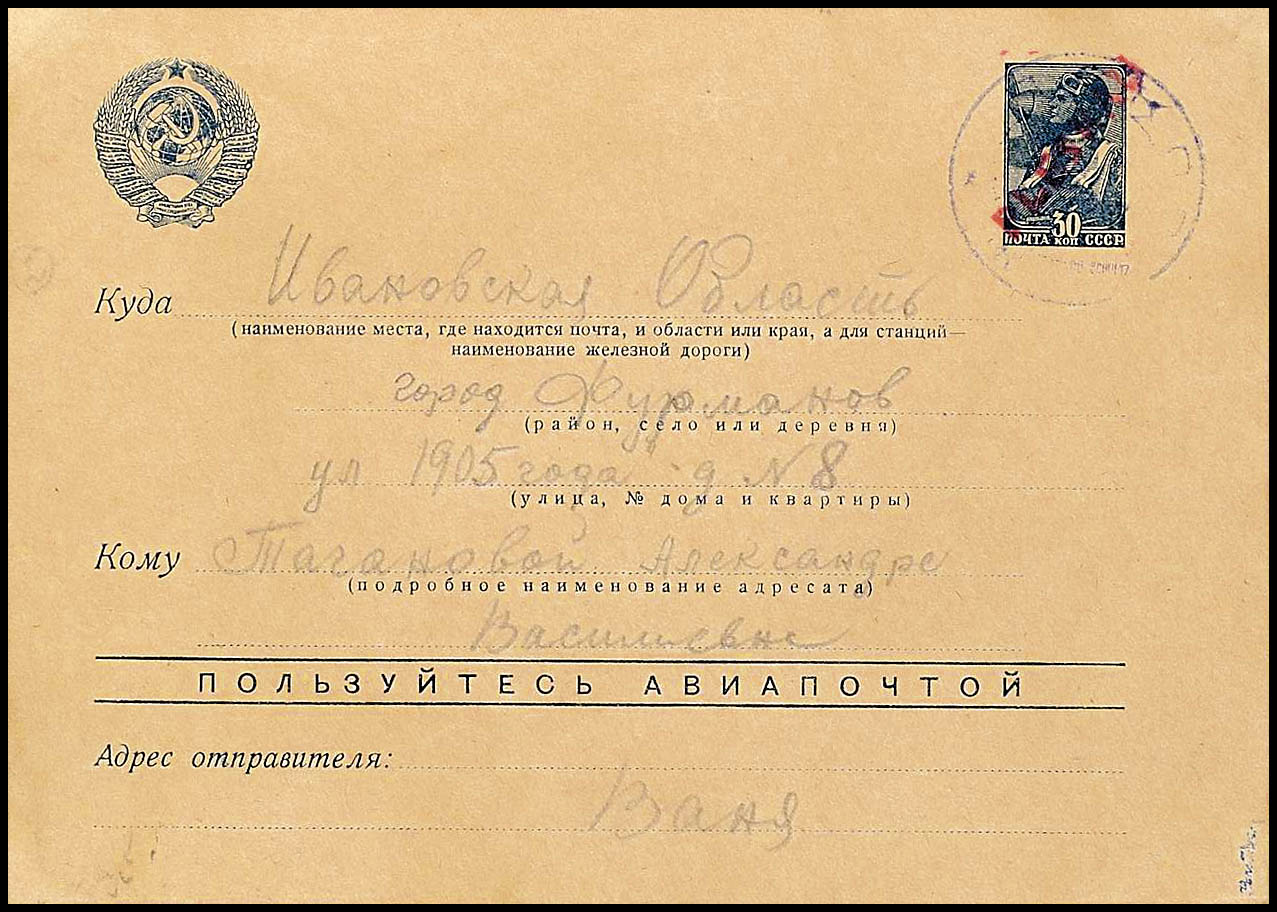 30
ПОЧТА КОП СССР
Куда Ивановская Область
(наименование места, где находится почта, и области или края, а для станций—
наименование железной дороги)
город Фурманов
(район, село или деревня)
ул 1905 года д N 8
(улица, № дома и квартиры)
Кому Тагановой Александре
(подробное наименование адресата)
Василиевне
ПОЛЬЗУЙТЕСЬ АВИАПОЧТОЙ
Адрес отправителя:
Ваня